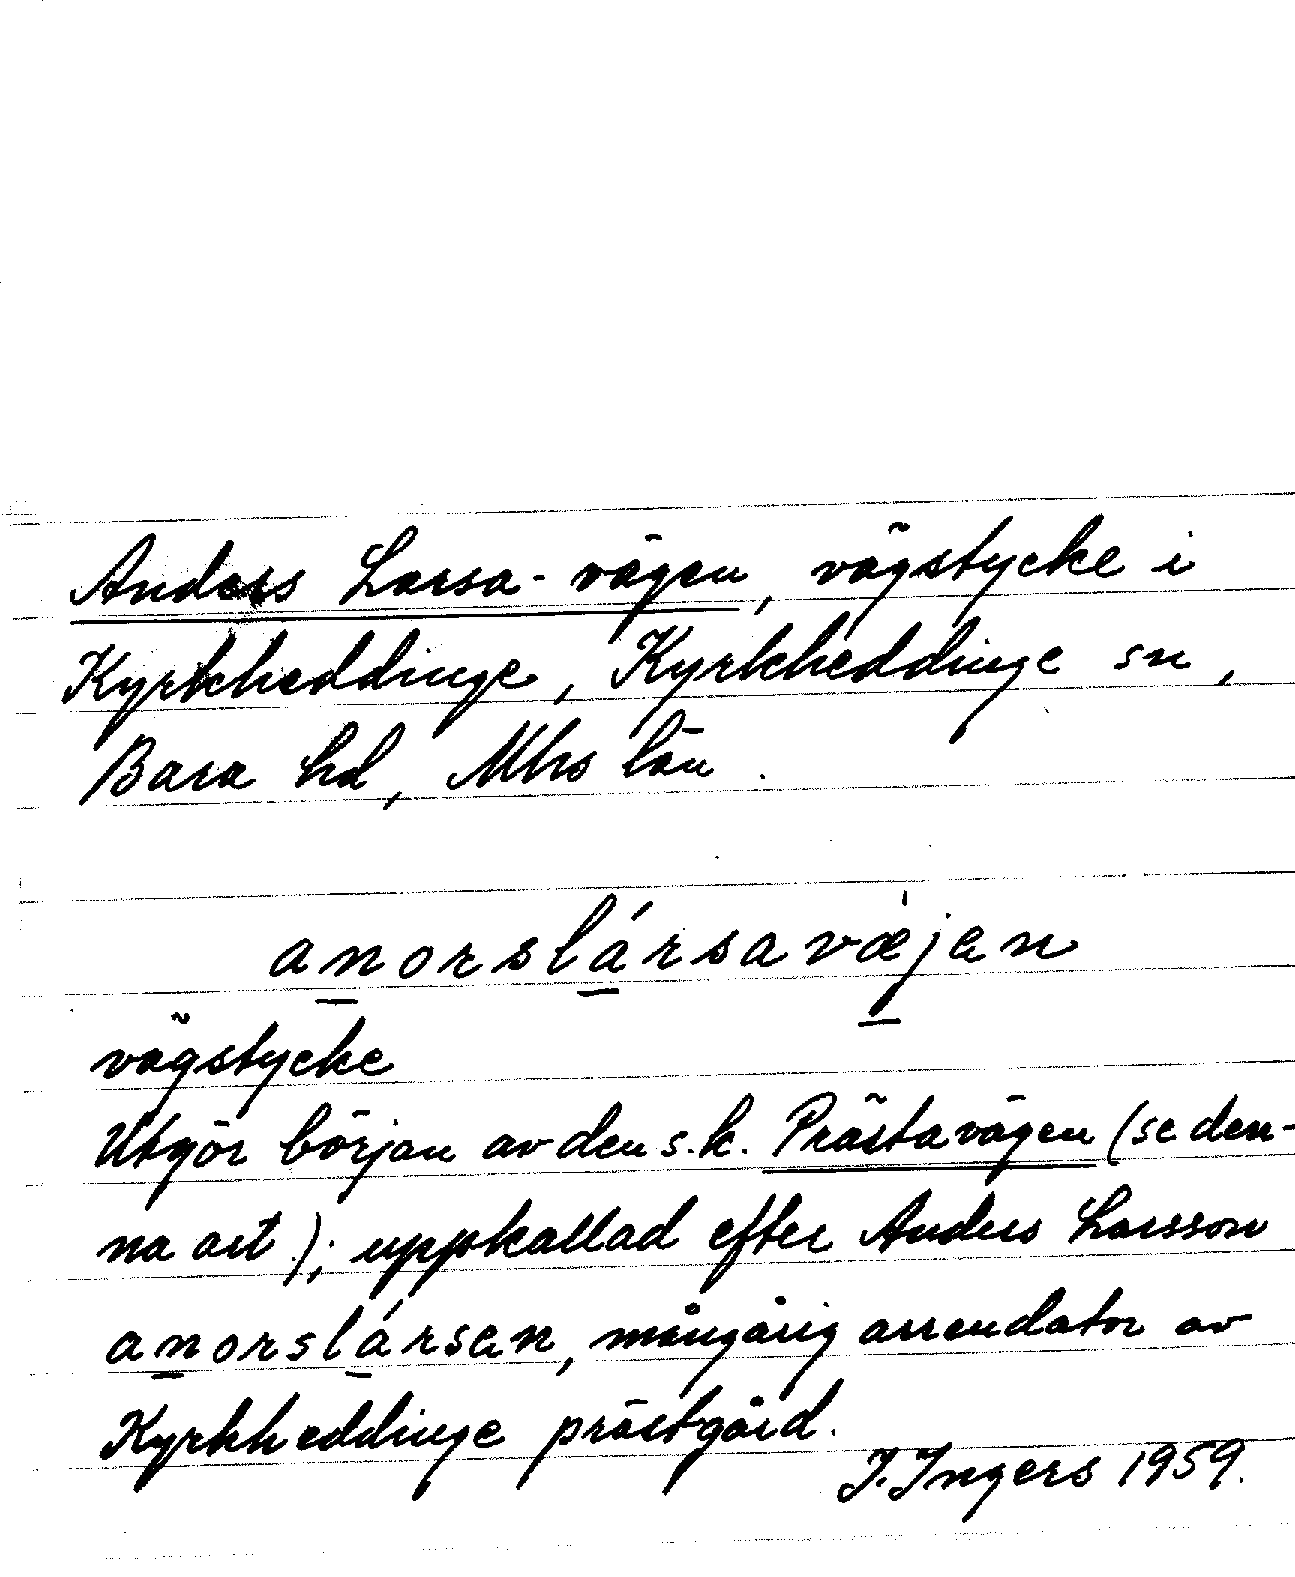 Anders Larsa-vägen, vägstycke i
Kyrkheddinge, Kyrkheddinge sn,
Bara hd, Mhs län.
anorslársavæ̀jen
vägstycke
Utgör början av den s.k. Prästavägen (se den-
na art.); uppkallad efter Anders Larsson
anorslársen, mångårig arrendator av
Kyrkheddinge prästgård.
I. Ingers 1959.